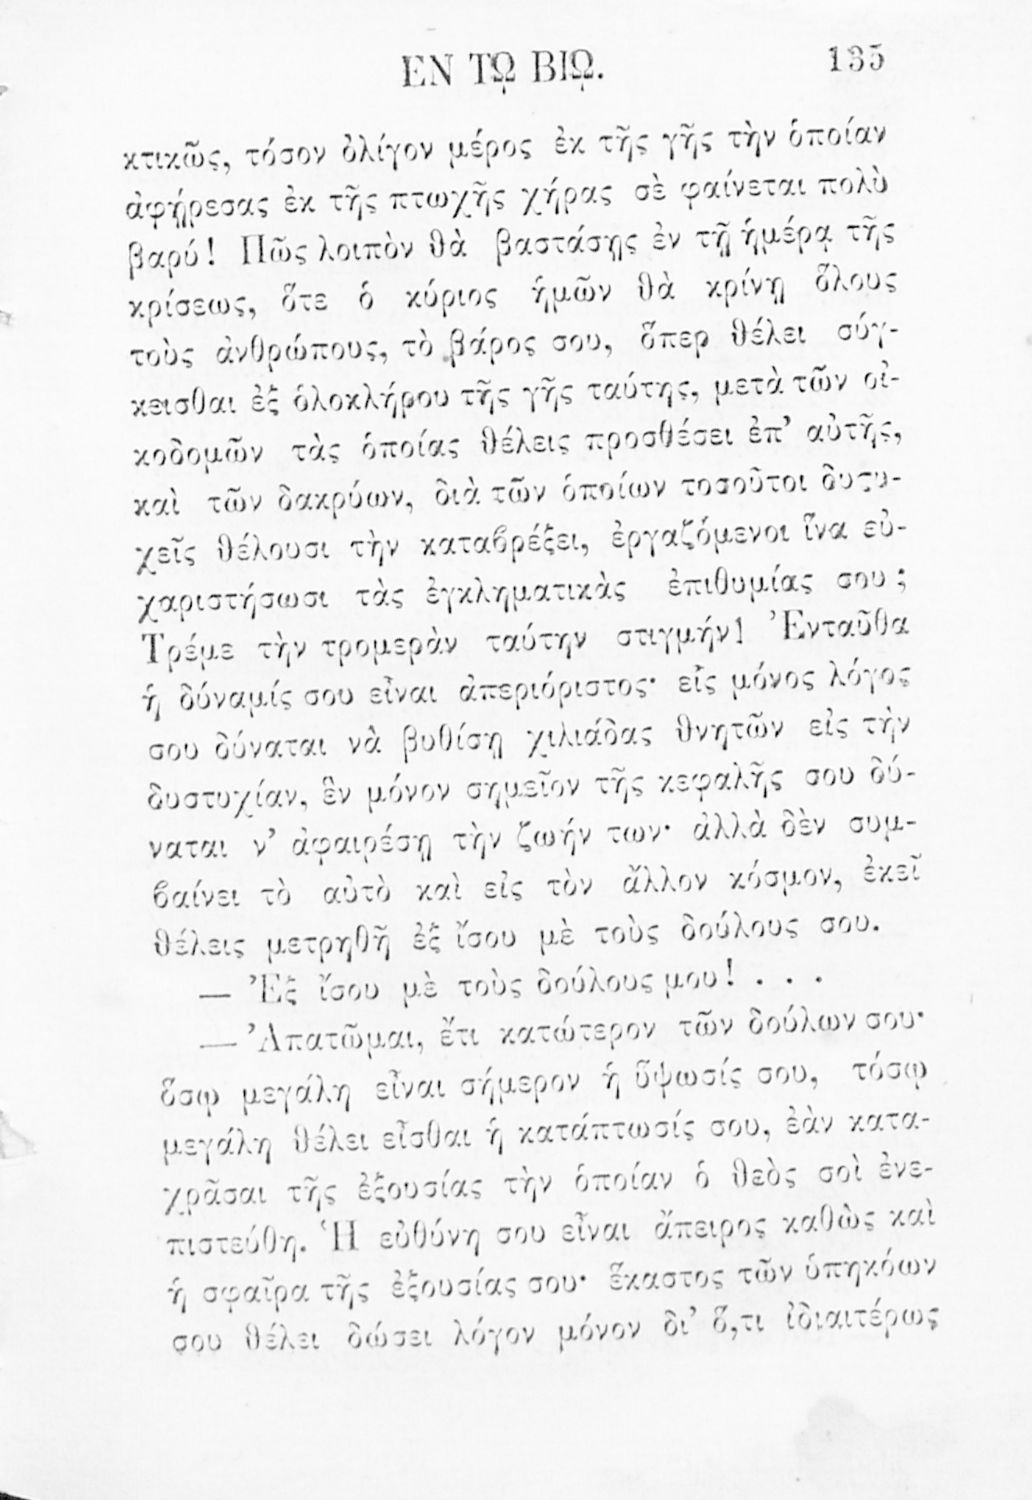 ΕΝ Τῼ ΒΙῼ. 135
κτικῶς, τόσον ὀλίγον μέρος ἐκ τῆς γῆς τὴν ὁποίαν
ἀφῄρεσας ἐκ τῆς πτωχῆς χήρας σὲ φαίνεται πολὺ
βαρύ! Πῶς λοιπὸν θὰ βαστάσῃς ἐν τῇ ἡμέρᾳ τῆς
κρίσεως, ὅτε ὁ κύριος ἡμῶν θὰ κρίνῃ ὅλους
τοὺς ἀνθρώπους, τὸ βάρος σου, ὅπερ θέλει σύγ-
κεισθαι ἐξ ὁλοκλήρου τῆς γῆς ταύτης, μετὰ τῶν οἰ-
κοδομῶν τὰς ὁποίας θέλεις προσθέσει ἐπ’ αὐτῆς,
καὶ τῶν δακρύων, διὰ τῶν ὁποίων τοσοῦτοι δυτυ-
χεῖς θέλουσι τὴν καταϐρέξει, ἐργαζόμενοι ἵνα εὐ-
χαριστήσωσι τὰς ἐγκληματικὰς ἐπιθυμίας σου;
Τρέμε τὴν τρομερὰν ταύτην στιγμήν! Ἐνταῦθα
ἡ δύναμίς σου εἶναι ἀπεριόριστος· εἷς μόνος λόγος
σου δύναται νὰ βυθίσῃ χιλιάδας θνητῶν εἰς τὴν
δυστυχίαν, ἓν μόνον σημεῖον τῆς κεφαλῆς σου δύ-
ναται ν’ ἀφαιρέσῃ τὴν ζωήν των· ἀλλὰ δὲν συμ-
ϐαίνει τὸ αὐτὸ καὶ εἰς τὸν ἄλλον κόσμον, ἐκεῖ
θέλεις μετρηθῆ ἐξ ἴσου μὲ τοὺς δούλους σου.
— Ἐξ ἴσου μὲ τοὺς δούλους μου! . . .
— Ἀπατῶμαι, ἔτι κατώτερον τῶν δούλων σου·
ὅσῳ μεγάλη εἶναι σήμερον ἡ ὕψωσίς σου, τόσῳ
μεγάλη θέλει εἶσθαι ἡ κατάπτωσίς σου, ἐὰν κατα-
χρᾶσαι τῆς ἐξουσίας τὴν ὁποίαν ὁ θεὸς σοὶ ἐνε-
πιστεύθη. Ἡ εὐθύνη σου εἶναι ἄπειρος καθὼς καὶ
ἡ σφαῖρα τῆς ἐξουσίας σου· ἕκαστος τῶν ὑπηκόων
σου θέλει δώσει λόγον μόνον δι’ ὅ,τι ἰδιαιτέρως